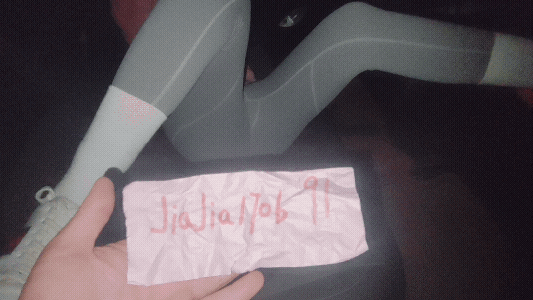 JiaJia17ob 91